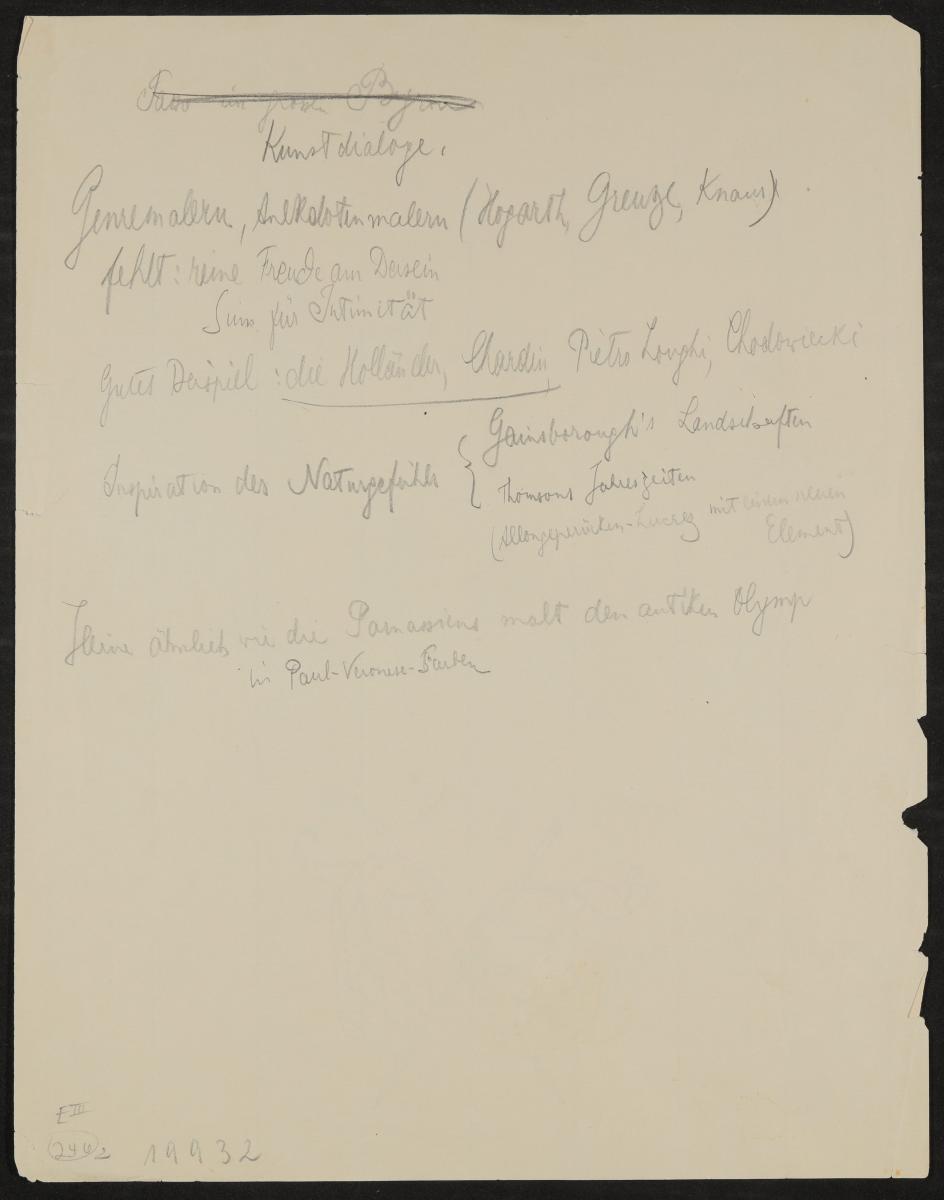 Tasso im grossen Byron
Kunstdialoge.
Genremalern, Anekdotenmalern (Hogarth, Greuze, Knaus)
fehlt: reine Freude am Dasein
Sinn für Intimität
Gutes Beispiel: die Holländer, Chardin, Pietro Longhi, Chodowiecki
Inspiration des Naturgefühls { Gainsborough's Landschaften
Thomsons Jahreszeiten
(Allongeperücken-Lucrez mit neuen
Element)
Heine ähnlich wie die Parnassiens malt den antiken Olymp
in Paul-Veronese-Farben
E III
2462 19932